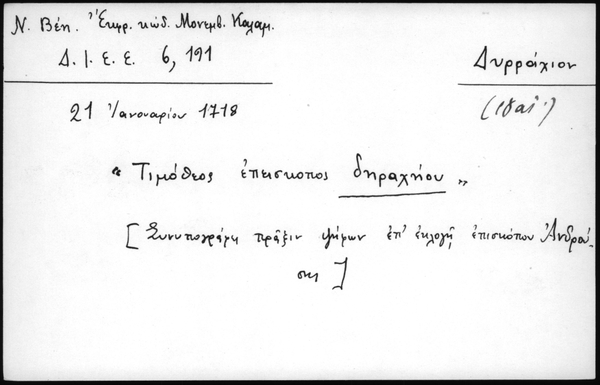 Ν. Βέη. Ἐκφρ. κώδ. Μονεμβ. Καλαμ.
Δ. Ι. Ε. Ε. 6, 191
Δυρράχιον
21 Ἰανουαρίου 1718
" Τιμόθεος ἐπεισκοπος δηραχήου "
[ Συνυπογράφει πρᾶξιν ψήφων ἐπ' ἐκλογῇ ἐπισκόπου Ἀνδρού-
σης ]